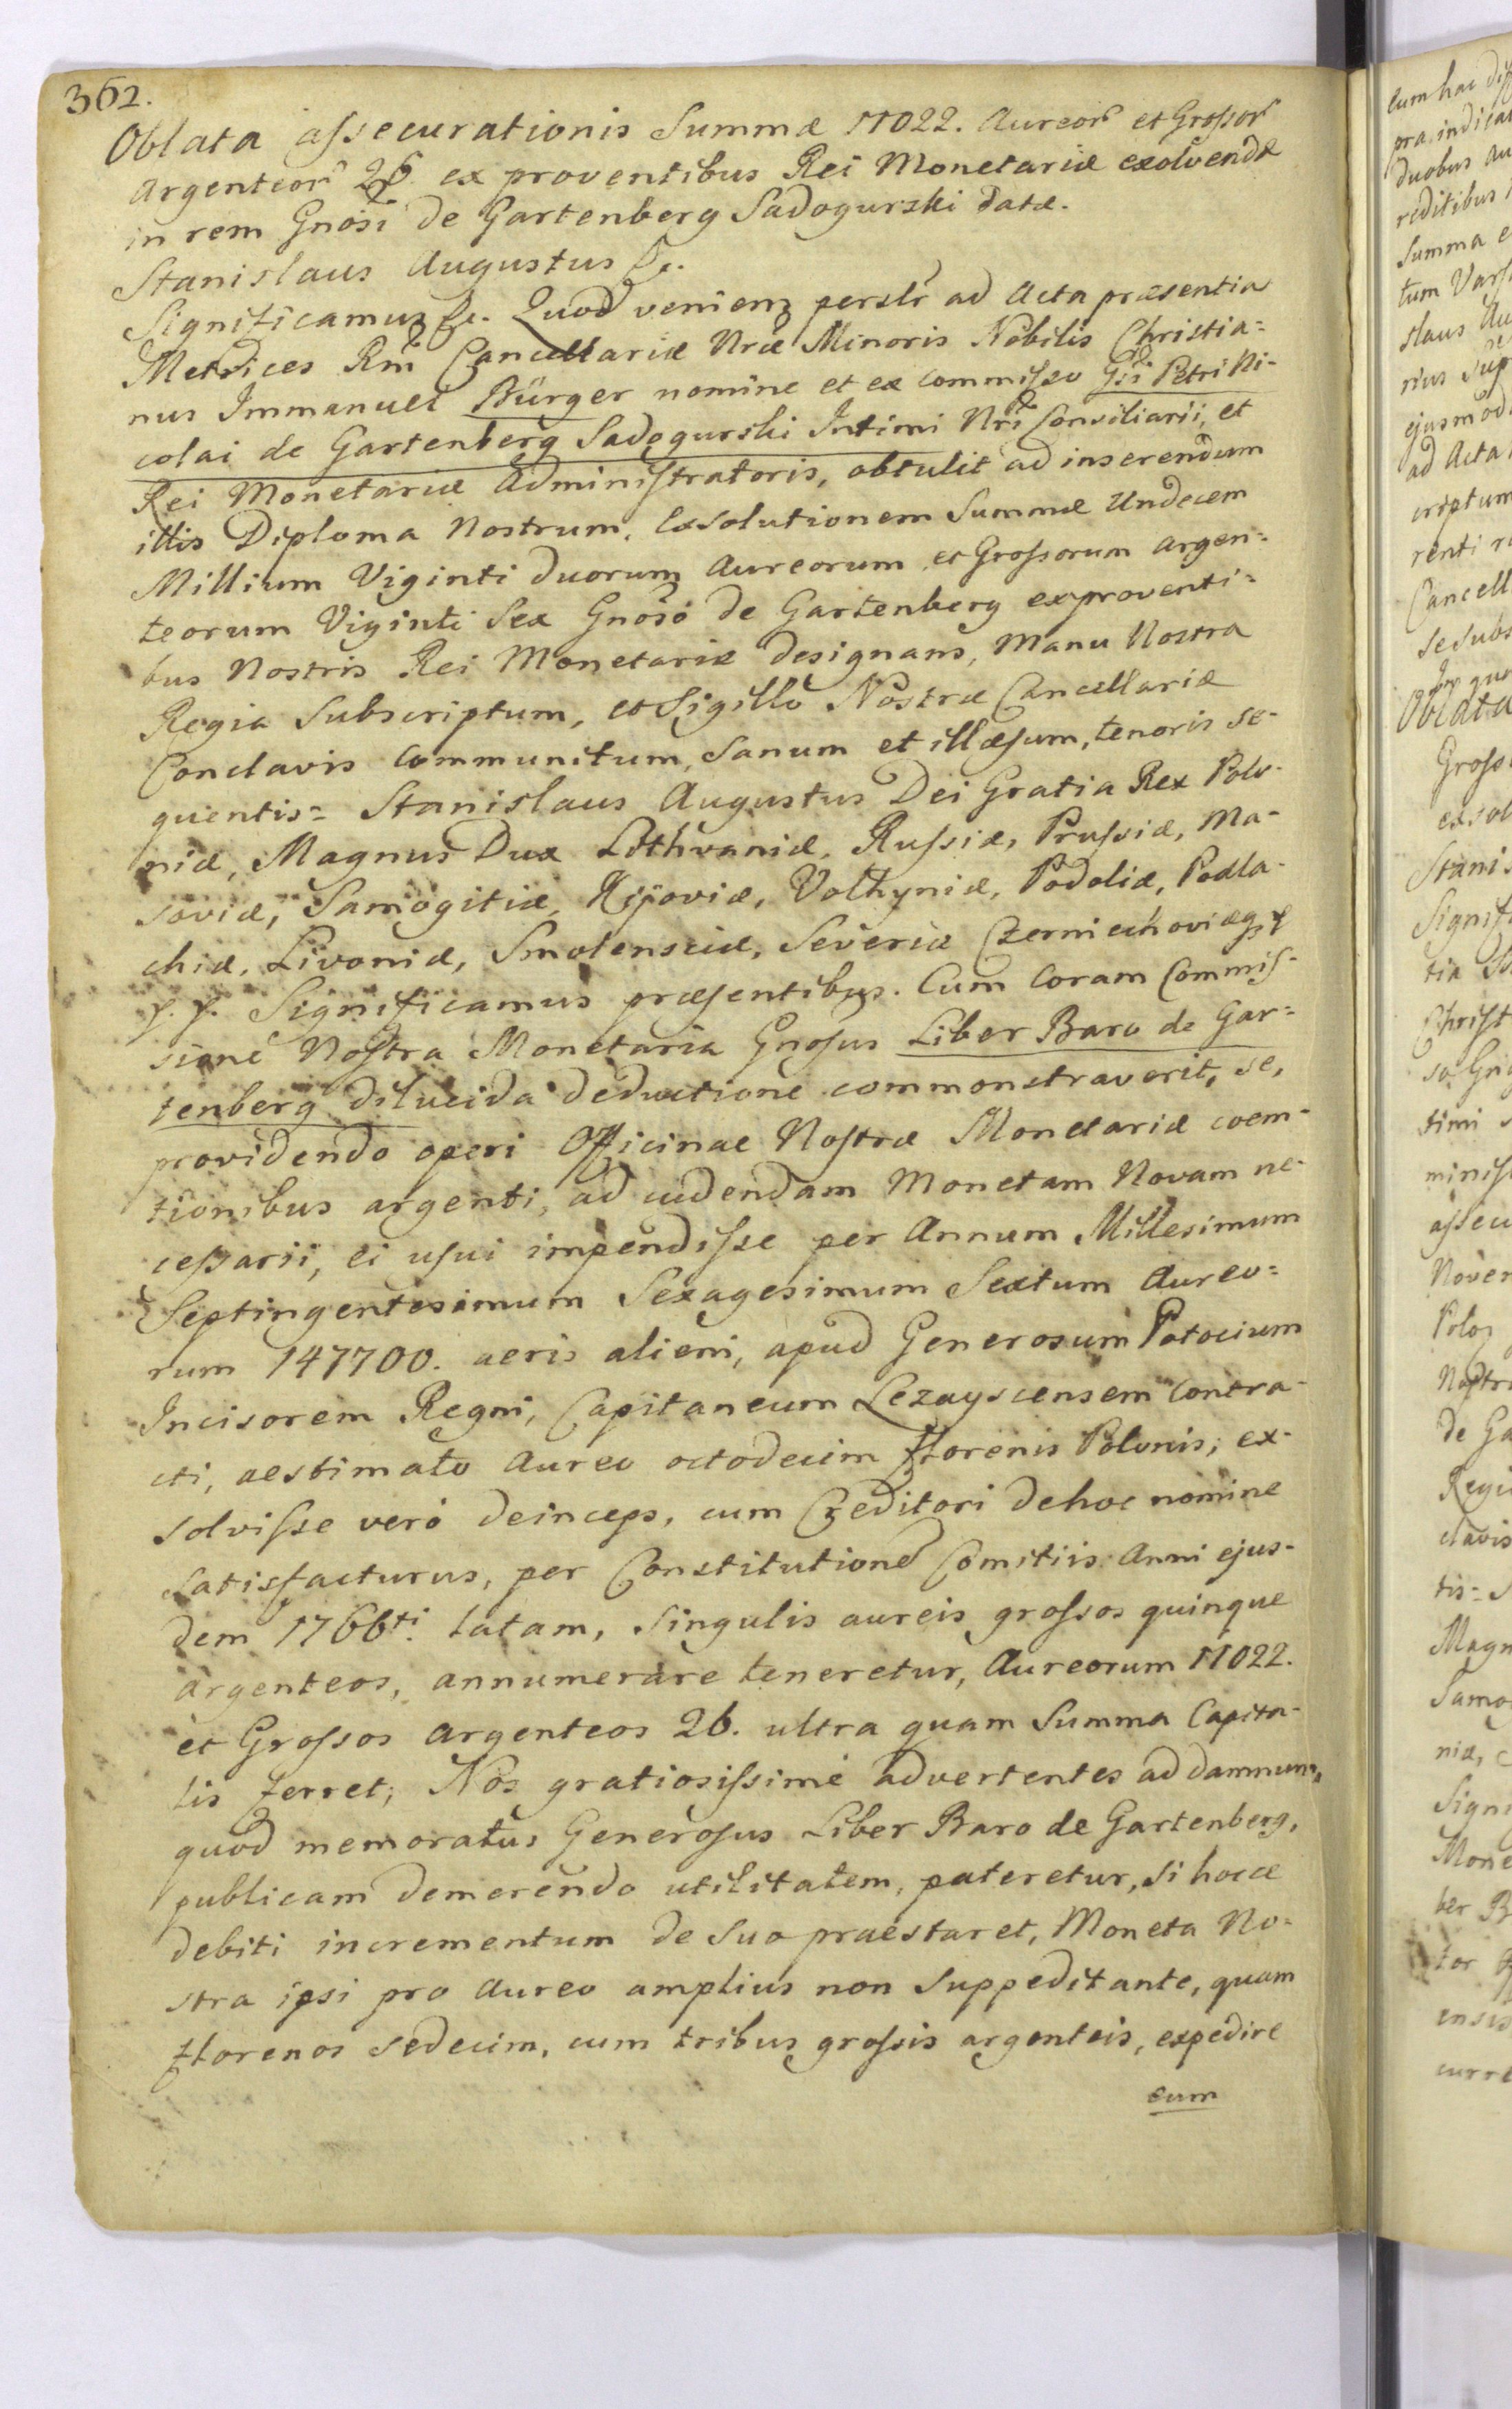 362.
Oblata assecurationis Summæ 11022. Aureor et Grossor
Argenteor 26 ex proventibus Rei Monetariæ exolvendæ
in rem Gnosi de Gartenberg Sadogurski datæ.
Stanislaus Augustus &.
Significamus &. Quod veniens perslr ad Acta præsentia
Metrices Rni Cancellariæ Nræ Minoris Nobilis Christia=
nus Immanuel Bürger nomine et ex commisso Gsi Petri Ni-
colai de Gartenberg Sadogurski Intimi Nri Consiliarii, et
Rei Monetariæ Administratoris, obtulit ad inserendum
illis Diploma Nostrum, Exsolutionem Summæ Undecem
Millium Viginti duorum Aureorum et Grossorum argen=
teorum Viginti Sex Gnoso de Gartenberg ex proventi=
bus Nostris Rei Monetariæ designans, Manu Nostra
Regia Subscriptum, et Sigillo Nostræ Cancellariæ
Conclavis Communitum, Sanum et illæsum, tenoris se-
quentis= Stanislaus Augustus Dei Gratia Rex Polo-
niæ, Magnus Dux Lithvaniæ, Russiæ, Prussiæ, Ma-
soviæ, Samogitiæ, Kijoviæ, Volhyniæ, Podoliæ, Podla-
chiæ, Livoniæ, Smolensciæ, Severiæ Czerniechoviæq; &
&. &. Significamus præsentibus. Cum Coram Commis-
sione Nostra Monetaria Gnosus Liber Baro de Gar=
tenberg dilucida deductione commonstraverit, se,
providendo operi Officinae Nostræ Monetariæ coem-
tionibus argenti, ad cudendam Monetam Novam ne-
cessarii, ei usui impendisse per Annum Millesimum
Septingentesimum Sexagesimum Sextum Aureo=
rum 147700. aeris alieni, apud Generosum Potocium
Incisorem Regni, Capitaneum Lezayscensem contra-
cti, aestimato Aureo octodecim florenis Polonis; ex-
solvisse verò deinceps, cum Creditori de hoc nomine
satisfacturus, per Constitutionē Comitiis Anni ejus-
dem 1766ti. latam, singulis aureis grossos quinque
argenteos, annumerare teneretur, Aureorum 11022.
et Grossos argenteos 26. ultra quam Summa Capita-
lis ferret; Nos gratiosissimè advertentes ad damnum,
quod memoratus Generosus Liber Baro de Gartenberg,
publicam demerendo utilitatem, pateretur, si hocce
debiti incrementum de suo praestaret, Moneta No=
stra ipsi pro Aureo amplius non suppeditante, quam
florenos sedecim, cum tribus grossis argenteis, expedire
eum